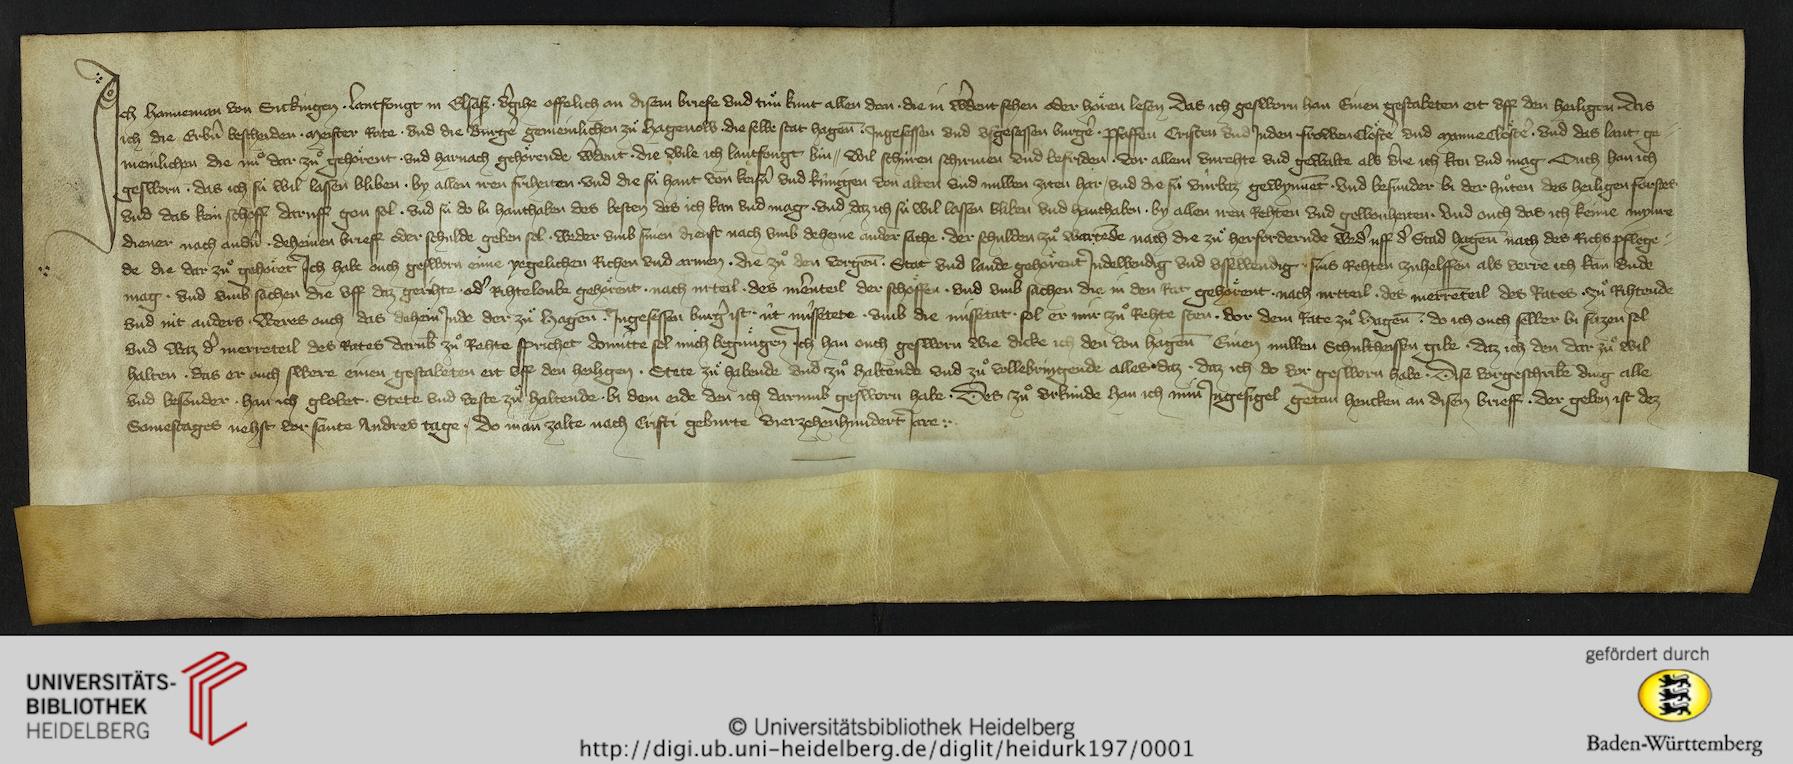 Ich Hanneman von Sickingen · lantfougt in Elsasz · v'gihe offelich an disem briefe vnd tuͦn kunt allen den · die in w'dent sehen oder hoͤren lesen · Das ich gesworn han Einen gestabeten eit vff den heiligen · Das
ich die Erbn̄ bescheiden · Meister Rate · vnd die burg'e gemeinlichen zuͦ Hagenow · die selbe stat hagen̄ · Ingesessen vnd vsgesessen burg'e · Pfaffen Cristen vnd Juden frowen Cloͤst'e vnd manne Cloͤst'e · vnd das lant ge-
meinlichen die nuͦ dar zuͦ gehoͤrent · vnd harnach gehoͤrende w'dent · die wile ich lantfougt bin // wil schuren schirmen vnd befriden · vor allem vnrehte vnd gewalte als v're ich kan vnd mag Ouch han ich
gesworn · das ich sú wil lassen bliben · by allen iren friheiten · vnd die sú hant von keis'n vnd kúnigen von alten vnd nuwen ziten har / vnd die sú vúrbaz gewynnēt · vnd besunder bi der huͦten des heiligen forstes
vnd das kein schoff daruff gon sol · vnd sú do bi hanthaben des besten des ich kan vnd mag · vnd daz ich sú wil lassen bliben vnd hanthaben · by allen iren Rehten vnd gewonheiten · Vnd ouch das ich keime myme
diener nach and'n · deheinen brieff oder schulde geben sol · weder vmb sinen dienst nach vmb deheine ander sache · der schulden zuͦ wartēde nach die zuͦ herfordernde wed' vff d' Stad hagen̄ nach des Richs pflege-
de die dar zuͦ gehoͤret Ich habe ouch gesworn eime yegelichen Richen vnd armen · die zuͦ den vorgen̄ · Stat vnd lande gehoͤrent Indewendig vnd vssewendig sins Rehten zuhelffen als verre ich kan vnde
mag · vnd vmb sachen die vff daz gerihte · od' Rihtelouben gehoͤrent · nach vrteil · des m'renteil der schoͤffen · vnd vmb sachen die in den Rat gehoͤrent · nach vrteil · des merrēteil des Rates · zuͦ Rihtende
vnd nit anders · Weres ouch das dehein Jude der zuͦ Hagen̄ · Ingesessen burg' ist · út missetete · vmb die missetat · sol er mir zuͦ Rehte sten · vor dem Rate zuͦ hagen̄ · do ich ouch selber bi sitzen sol
vnd waz d' merreteil des Rates darub zuͦ Rehte sprichet domitte sol mich begnuͤgen Ich han ouch gesworn wie dicke ich den von hagen̄ Einen nuwen Schultheissen gibe · daz ich den dar zuͦ wil
halten · das er ouch swere einen gestabeten eit vff den heiligen · Stete zuͦ habende vnd zuͦ haltende vnd zuͦ vollebringende alles daz · daz ich do vor gesworn habe · Dise vorgeschribē ding alle
vnd besonder · han ich globet · Stete vnd veste zuͦ haltende · bi dem eide den ich darumb gesworn habe · Des zuͦ vrkúnde han ich min Ingesigel getan hencken an disen brieff · der geben ist dez
Samestages nehst vor sante Andres tage · do man zalte nach Cristi geburte vierzehenhundert Jare
UNIVERSITÄTS-
BIBLIOTHEK
HEIDELBERG
gefördert durch
Baden-Württemberg
© Universitätsbibliothek Heidelberg
http://digi.ub.uni-heidelberg.de/diglit/heidurk197/0001